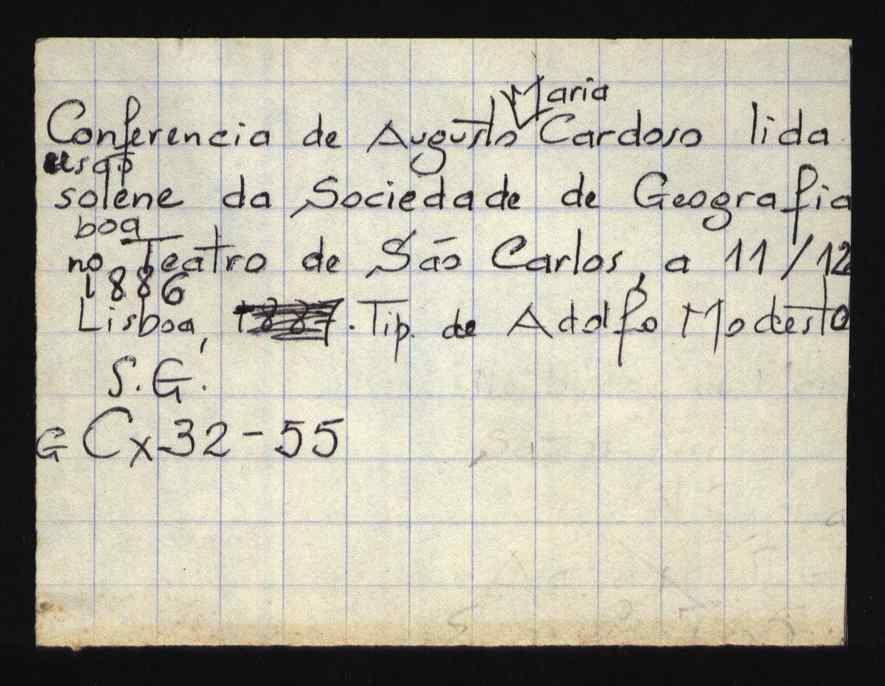 Maria
Conferencia de Augusto Cardoso lida
solene da Sociedade de Geografia
boa
no Teatro de São Carlos, a 11/12
1886
Lisboa, 1887. Tip. de Adolfo Modesto
S.G.
G Cx 32-55